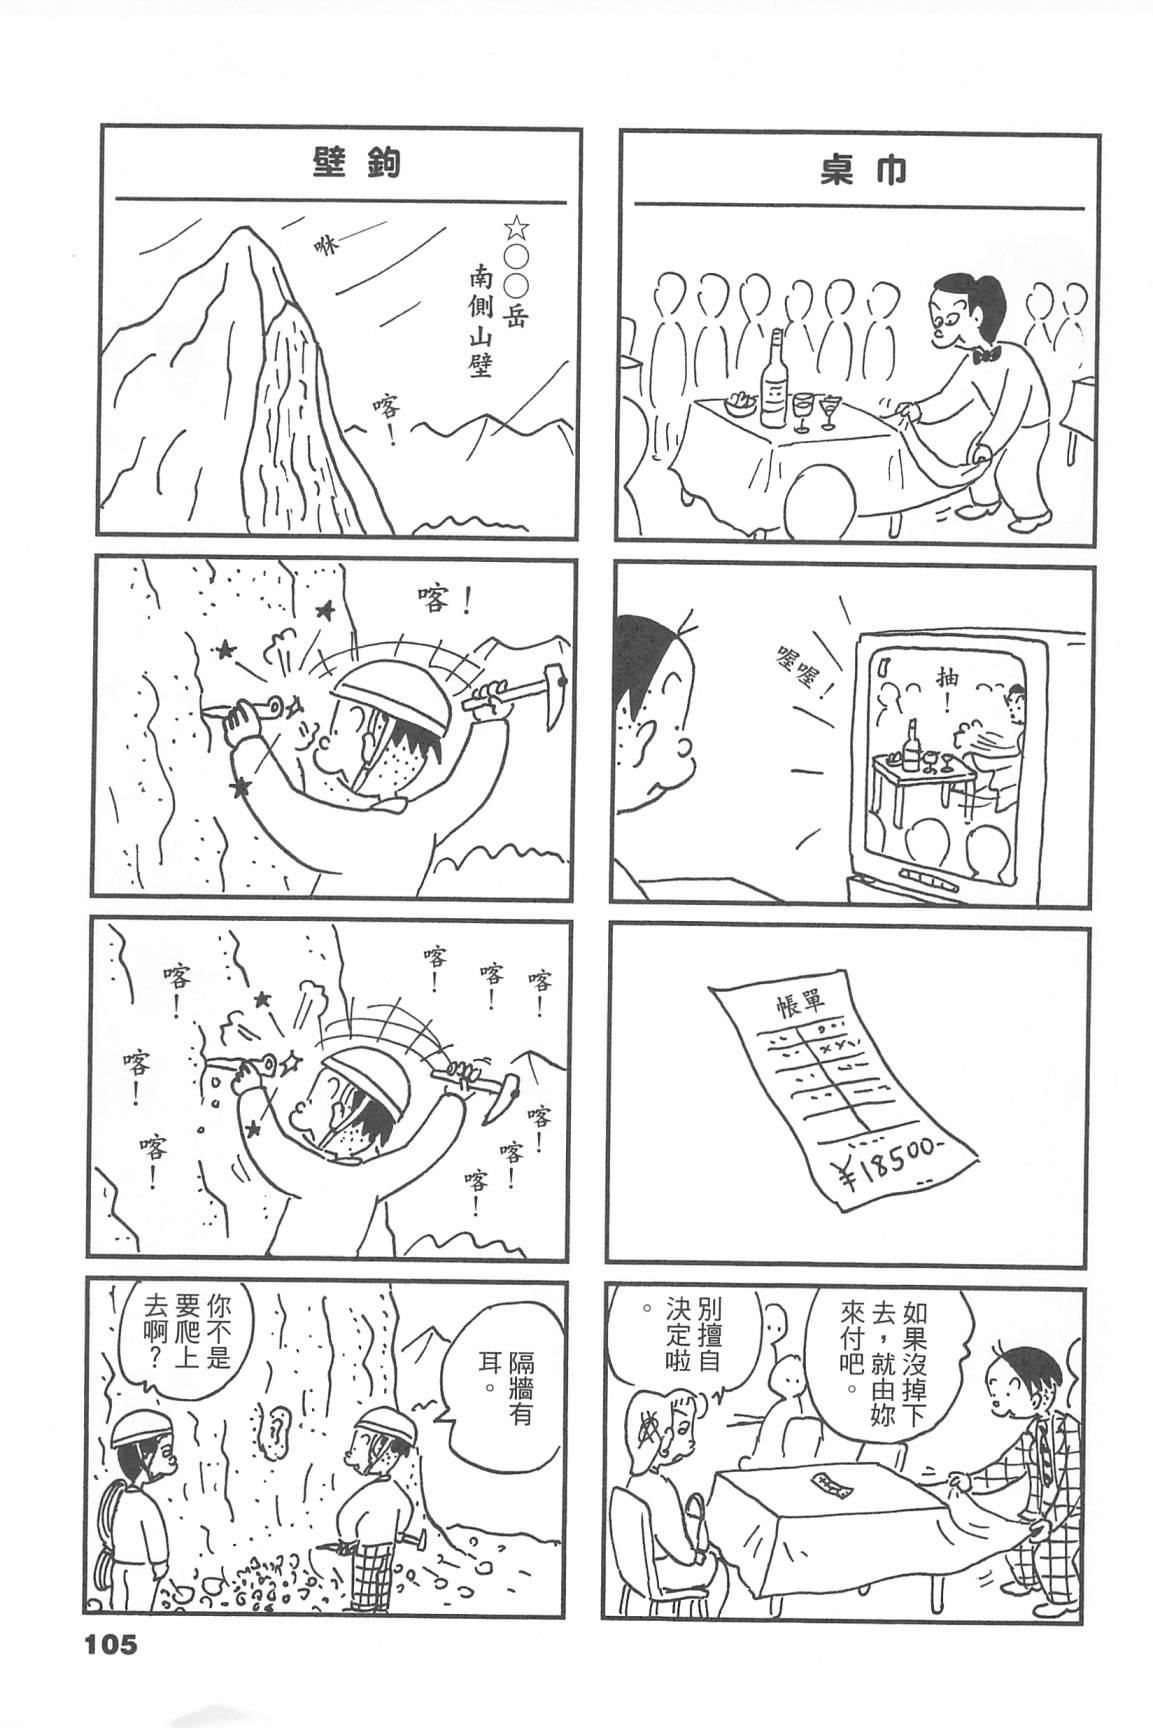 桌巾
喔喔！
抽！
帳單
¥18500-
如果沒掉下
去，就由妳
來付吧。
別擅自
決定啦
。
壁鉤
☆○○岳
南側山壁
咻
喀！
喀！
喀！
喀！
喀！
喀！
喀！
喀！
喀！
喀！
喀！
隔牆有
耳。
你不是
要爬上
去啊？
105